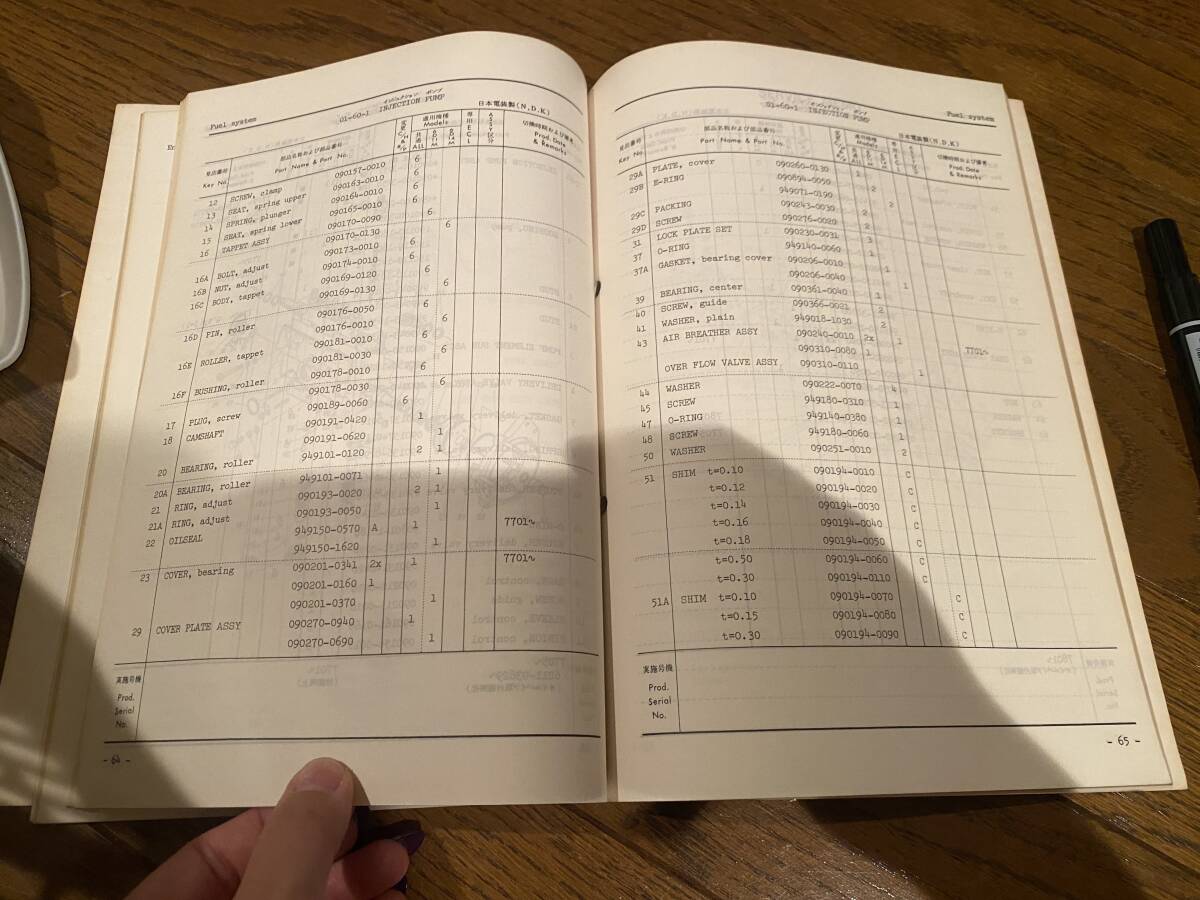 Fuel system
01-60-1
インジェクション ポンプ
INJECTION PUMP
日本電装製(N.D.K)
見出番号
Key No.
部品名称および部品番号
Part Name & Part No.
適用機種
Models
ECL
切換時期および備考
Prod. Date
& Remarks
12 SCREW, clamp 090157-0010 6
13 SEAT, spring upper 090163-0010 6
14 SPRING, plunger 090164-0010 6
15 SEAT, spring lower 090165-0010 6
16 TAPPET ASSY 090170-0090 6
090170-0130 6
16A BOLT, adjust 090173-0010 6
16B NUT, adjust 090174-0010 6
16C BODY, tappet 090169-0120 6
090169-0130 6
16D PIN, roller 090176-0050 6
090176-0010 6
16E ROLLER, tappet 090181-0010 6
090181-0030 6
16F BUSHING, roller 090178-0010 6
090178-0030 6
17 PLUG, screw 090189-0060 6
18 CAMSHAFT 090191-0420 1
090191-0620 1
20 BEARING, roller 949101-0120 2 1
949101-0071 1
20A BEARING, roller
21 RING, adjust 090193-0020 2 1
21A RING, adjust 090193-0050 1
22 OILSEAL 949150-0570 A 1 7701~
949150-1620 1
23 COVER, bearing 090201-0341 2x 1 7701~
090201-0160 1
090201-0370 1
29 COVER PLATE ASSY 090270-0940 1
090270-0690 1
実施号機
Prod.
Serial
No.
- 64 -
01-60-1
インジェクション ポンプ
INJECTION PUMP
Fuel system
日本電装製(N.D.K)
見出番号
Key No.
部品名称および部品番号
Part Name & Part No.
適用機種
Models
切換時期および備考
Prod. Date
& Remarks
29A PLATE, cover 090260-0130 1
29B E-RING 090894-0050 2
949071-0190 2
29C PACKING 090243-0030 2
29D SCREW 090276-0020 2
31 LOCK PLATE SET 090230-0031 3
37 O-RING 949140-0060 1
37A GASKET, bearing cover 090206-0010 1
090206-0040 1
39 BEARING, center 090361-0040 1
40 SCREW, guide 090366-0021 2
41 WASHER, plain 949018-1030 2
43 AIR BREATHER ASSY 090240-0010 2x 1 7701~
090310-0080 1
OVER FLOW VALVE ASSY 090310-0110 1
44 WASHER 090222-0070 4
45 SCREW 949180-0310 1
47 O-RING 949140-0380 1
48 SCREW 949180-0060 1
50 WASHER 090251-0010 2
51 SHIM t=0.10 090194-0010 C
t=0.12 090194-0020 C
t=0.14 090194-0030 C
t=0.16 090194-0040 C
t=0.18 090194-0050 C
t=0.50 090194-0060 C
t=0.30 090194-0110 C
51A SHIM t=0.10 090194-0070 C
t=0.15 090194-0080 C
t=0.30 090194-0090 C
実施号機
Prod.
Serial
No.
- 65 -